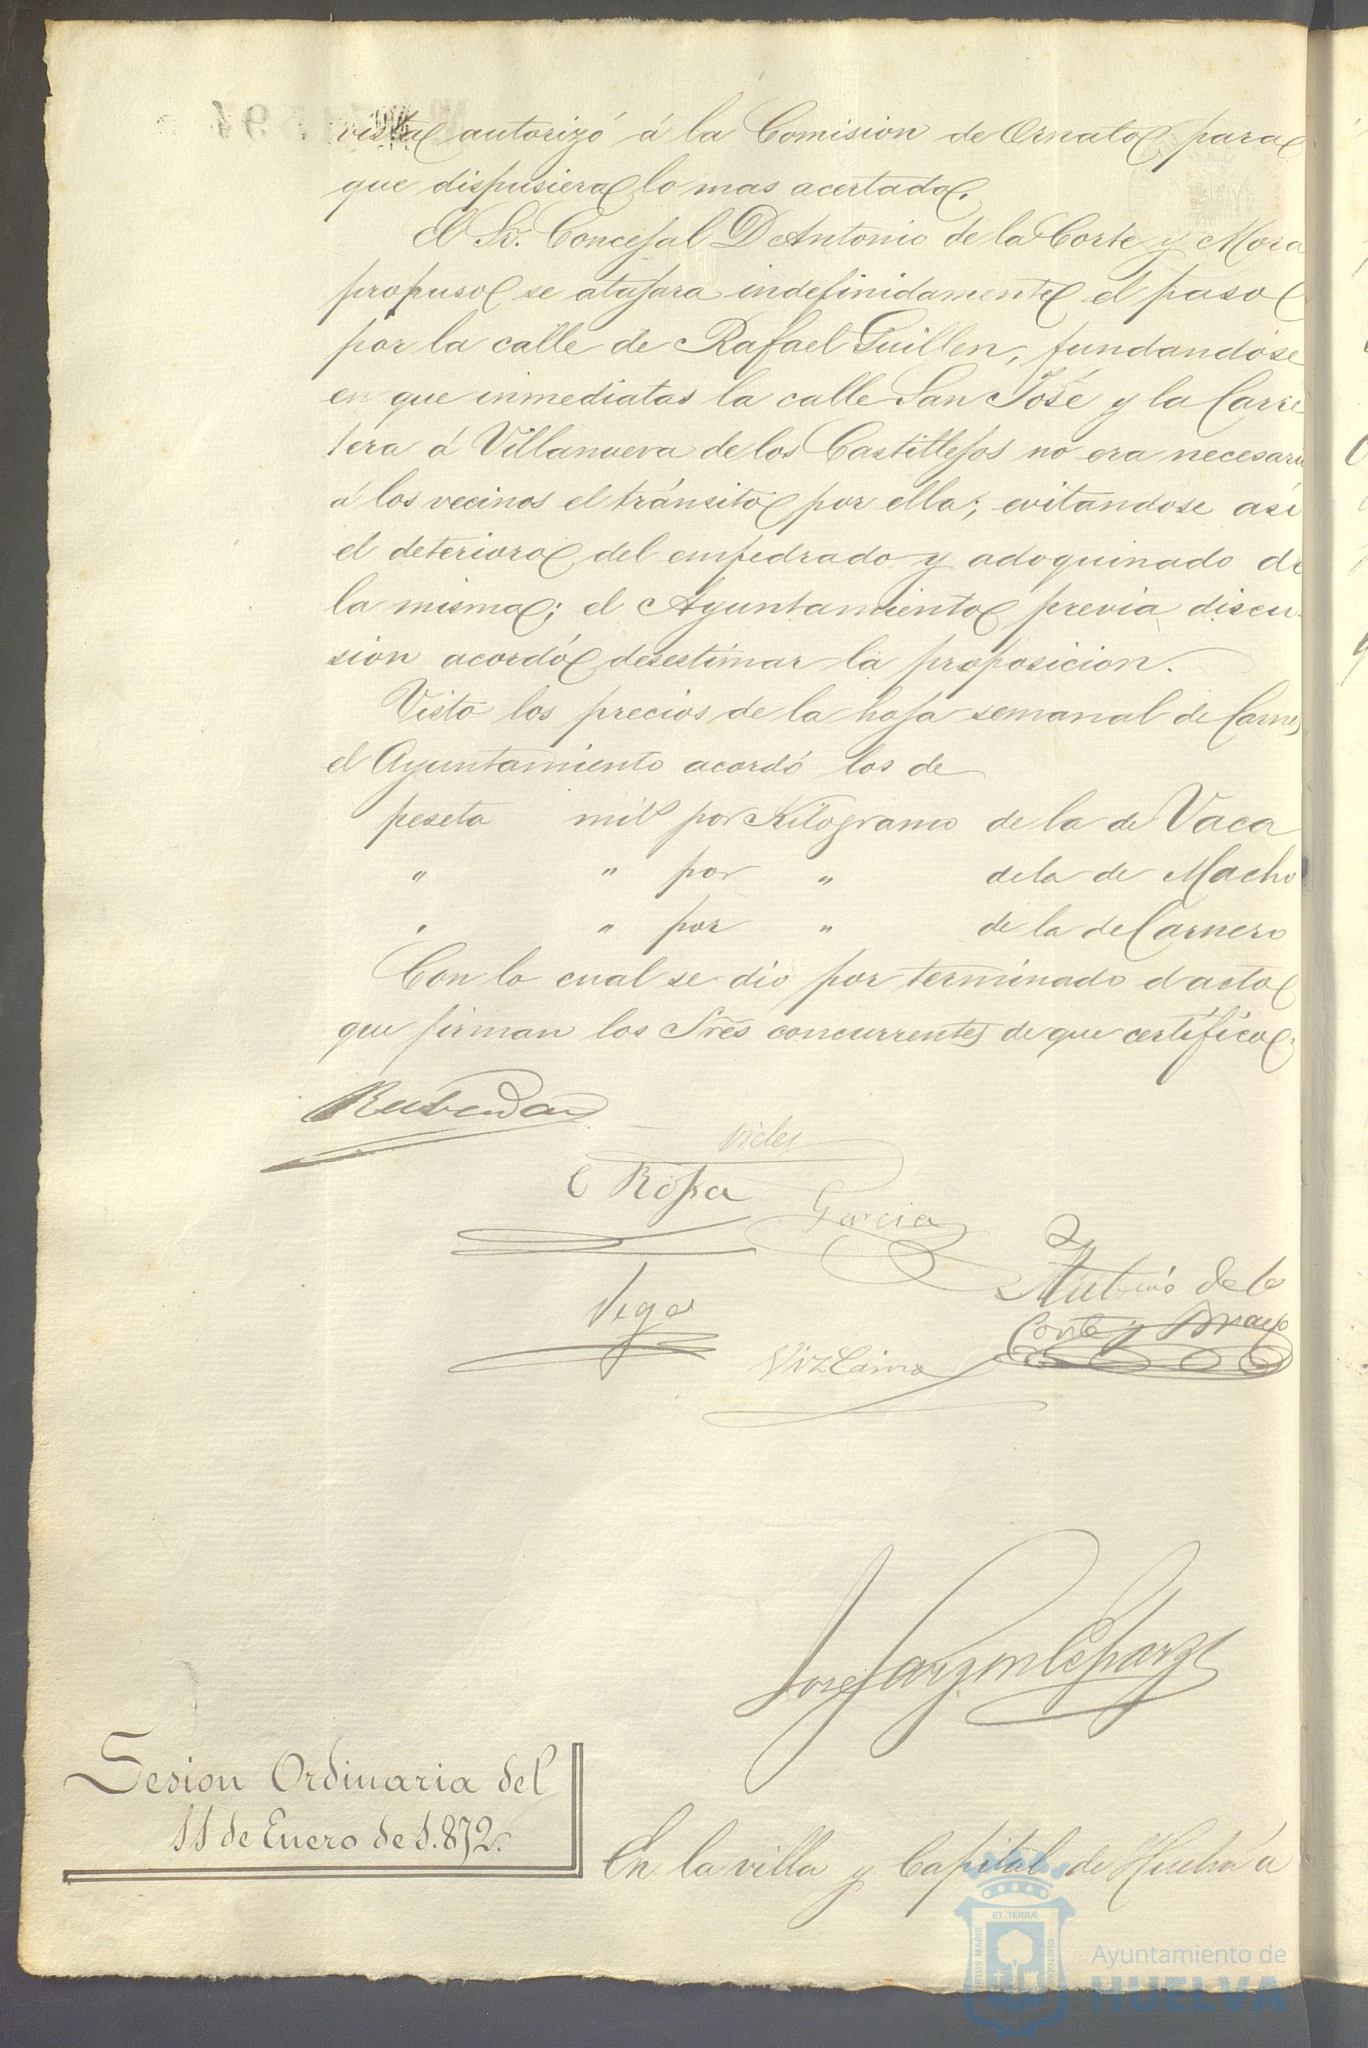 vista autorizó á la Comision de Ornato para
que dispusiera lo mas acertado.
El Sr. Concejal D Antonio de la Corte y Mora
propuso se atajara indefinidamente el paso
por la calle de Rafael Guillen, fundandose
en que inmediatas la calle San José y la Carre
tera á Villanueva de los Castillejos no era necesario
á los vecinos el tránsito por ella; evitandose así
el deterioro del empedrado y adoquinado de
la misma; el Ayuntamiento previa discu-
sion acordó desestimar la proposicion.
Visto los precios de la hoja semanal de Carnes
el Ayuntamiento acordó los de
peseta mil.s por Kilogramo de la de Vaca
" " por " de la de Macho
" " por " de la de Carnero
Con lo cual se dio por terminado el acto
que firman los Sres concurrentes de que certifico.
Vides
C Rioja
Garcia
Antonio de la
Vega
Corte y
Vizcaino
Jose
Sesion Ordinaria del
11 de Enero de 1.872.
En la villa y Capital de Huelva á
ET TERRÆ
PORTUS MARIS
CUSTODIA
Ayuntamiento de
HUELVA